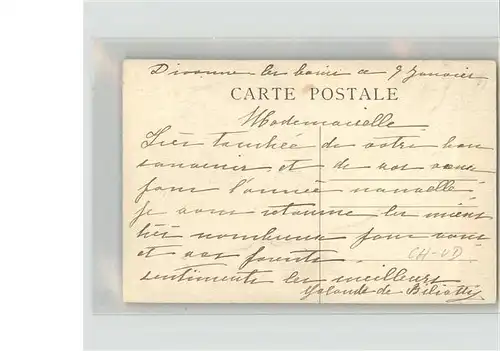 Divonne les bains ce 9 Janvier
CARTE POSTALE
Mademoiselle
Très touchée de votre bon
souvenir et de vos vœux
pour l'année nouvelle
je vous retourne les miens
très nombreux pour vous
et vos parents
CH-VD
sentiments les meilleurs
Yolande de Biliotti